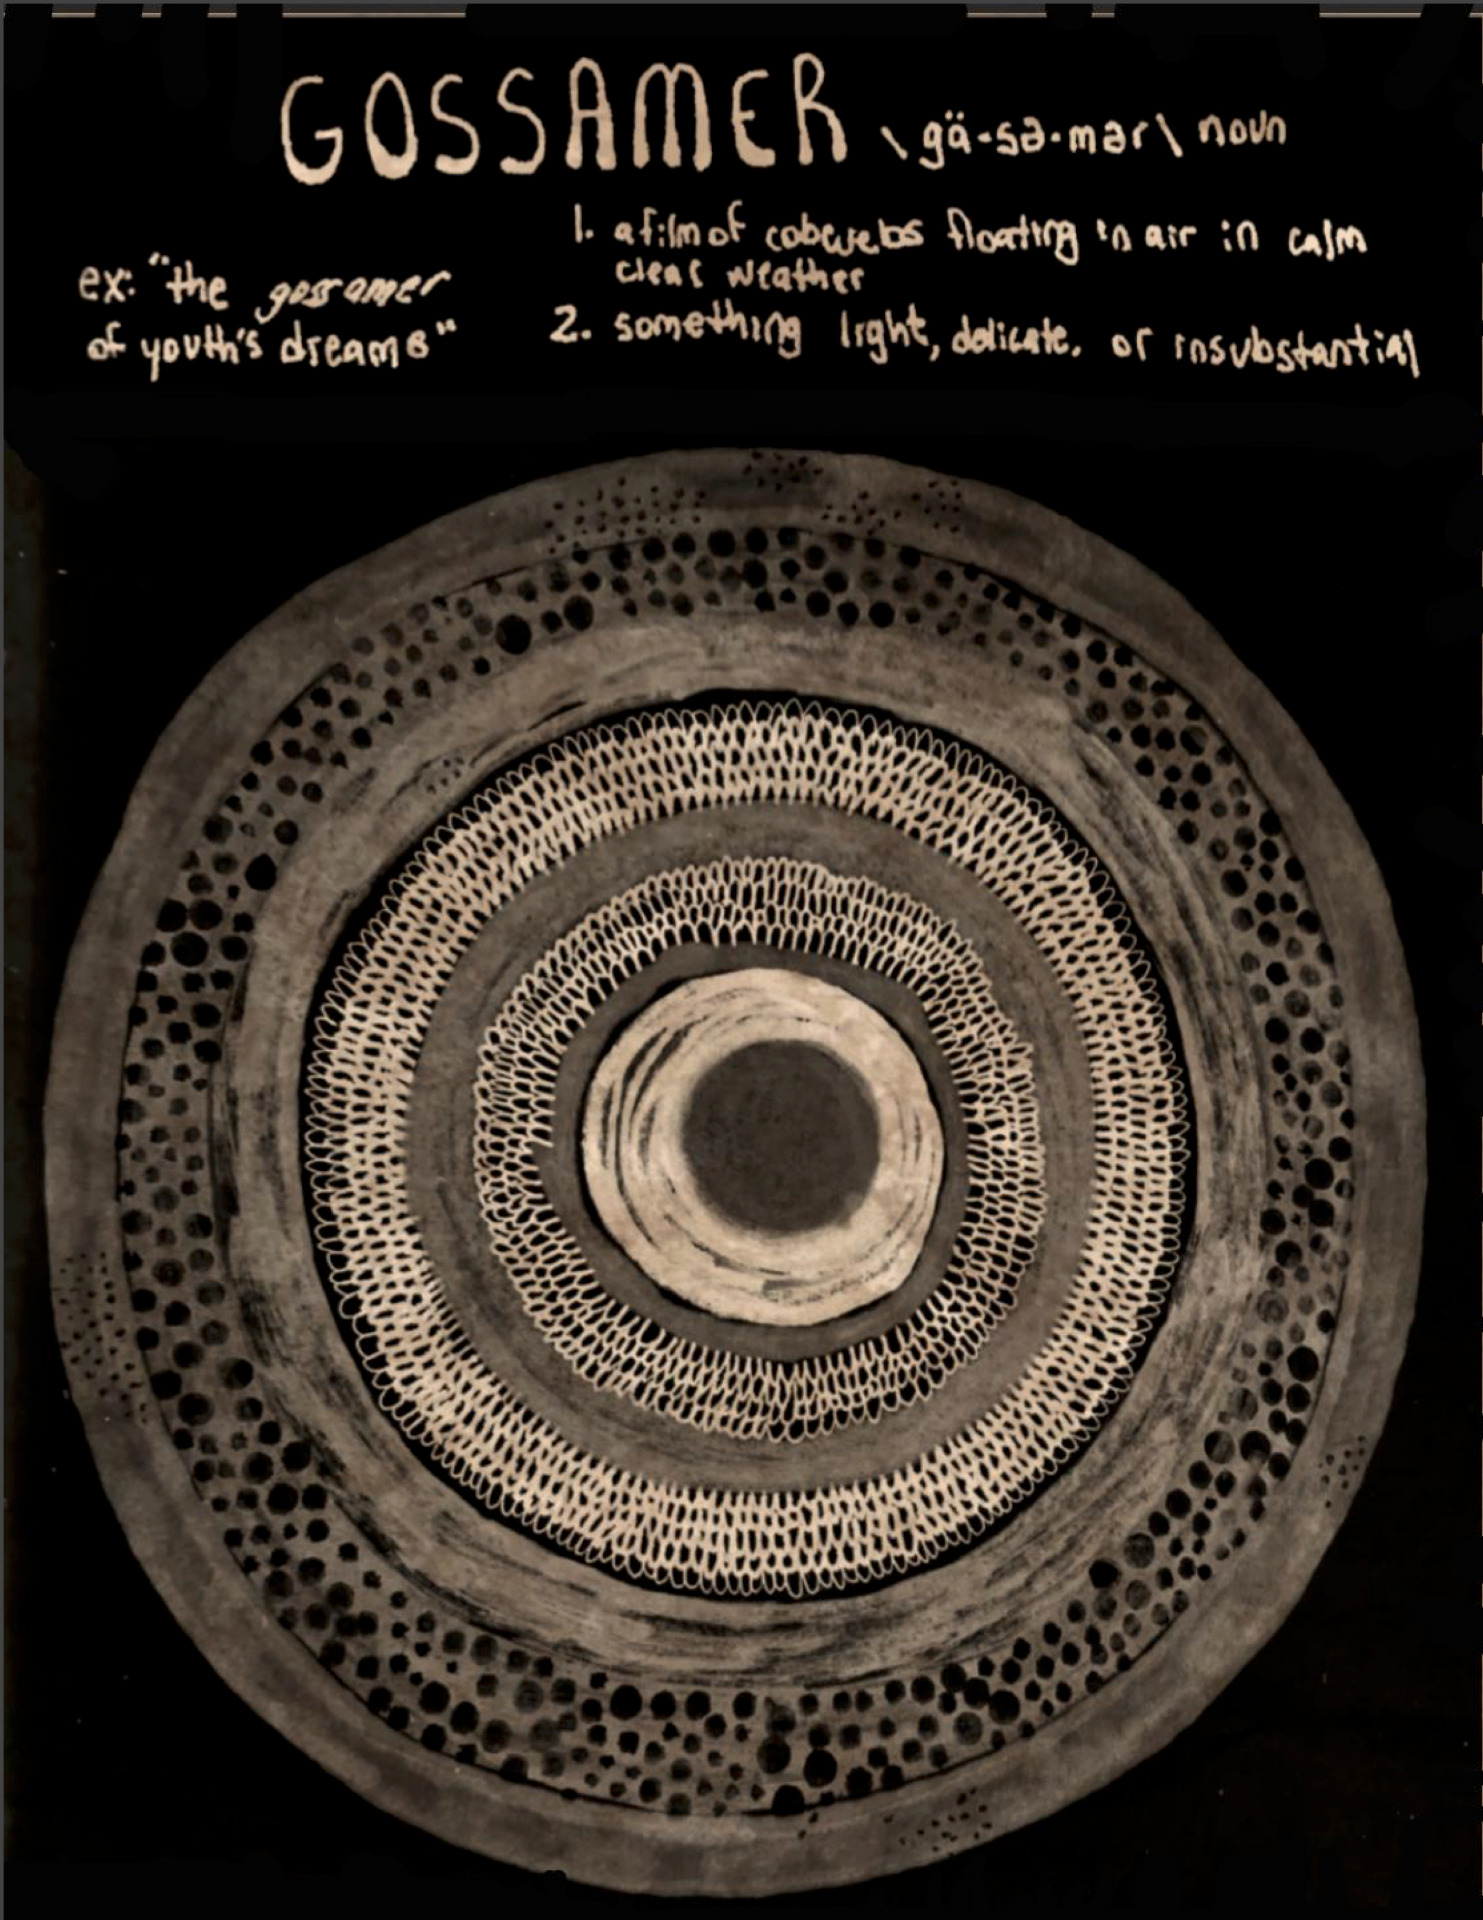 GOSSAMER \gä-sə-mər\ noun
1. a film of cobwebs floating in air in calm
clear weather
2. something light, delicate, or insubstantial
ex: "the gossamer
of youth's dreams"